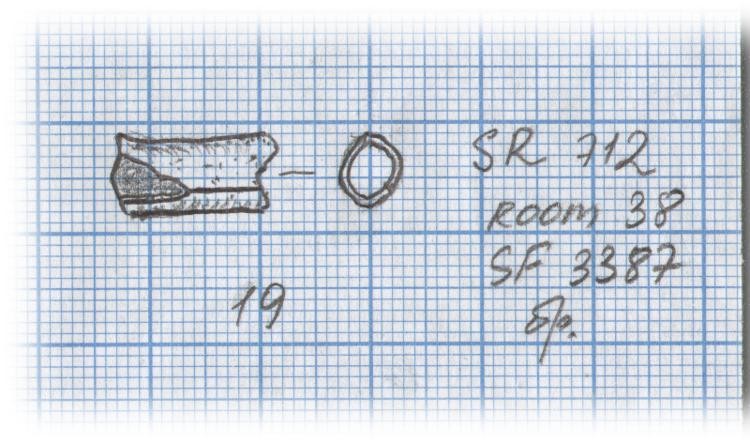 SR 712
room 38
SF 3387
бр.
19